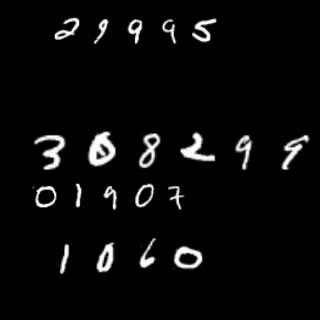 29995
308299
01907
1060